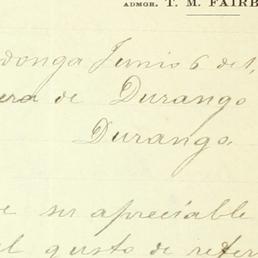 ADMOR. T. M. FAIRB
donga Junio 6 de 1,
era de Durango
Durango.
e su apreciable
el gusto de refer